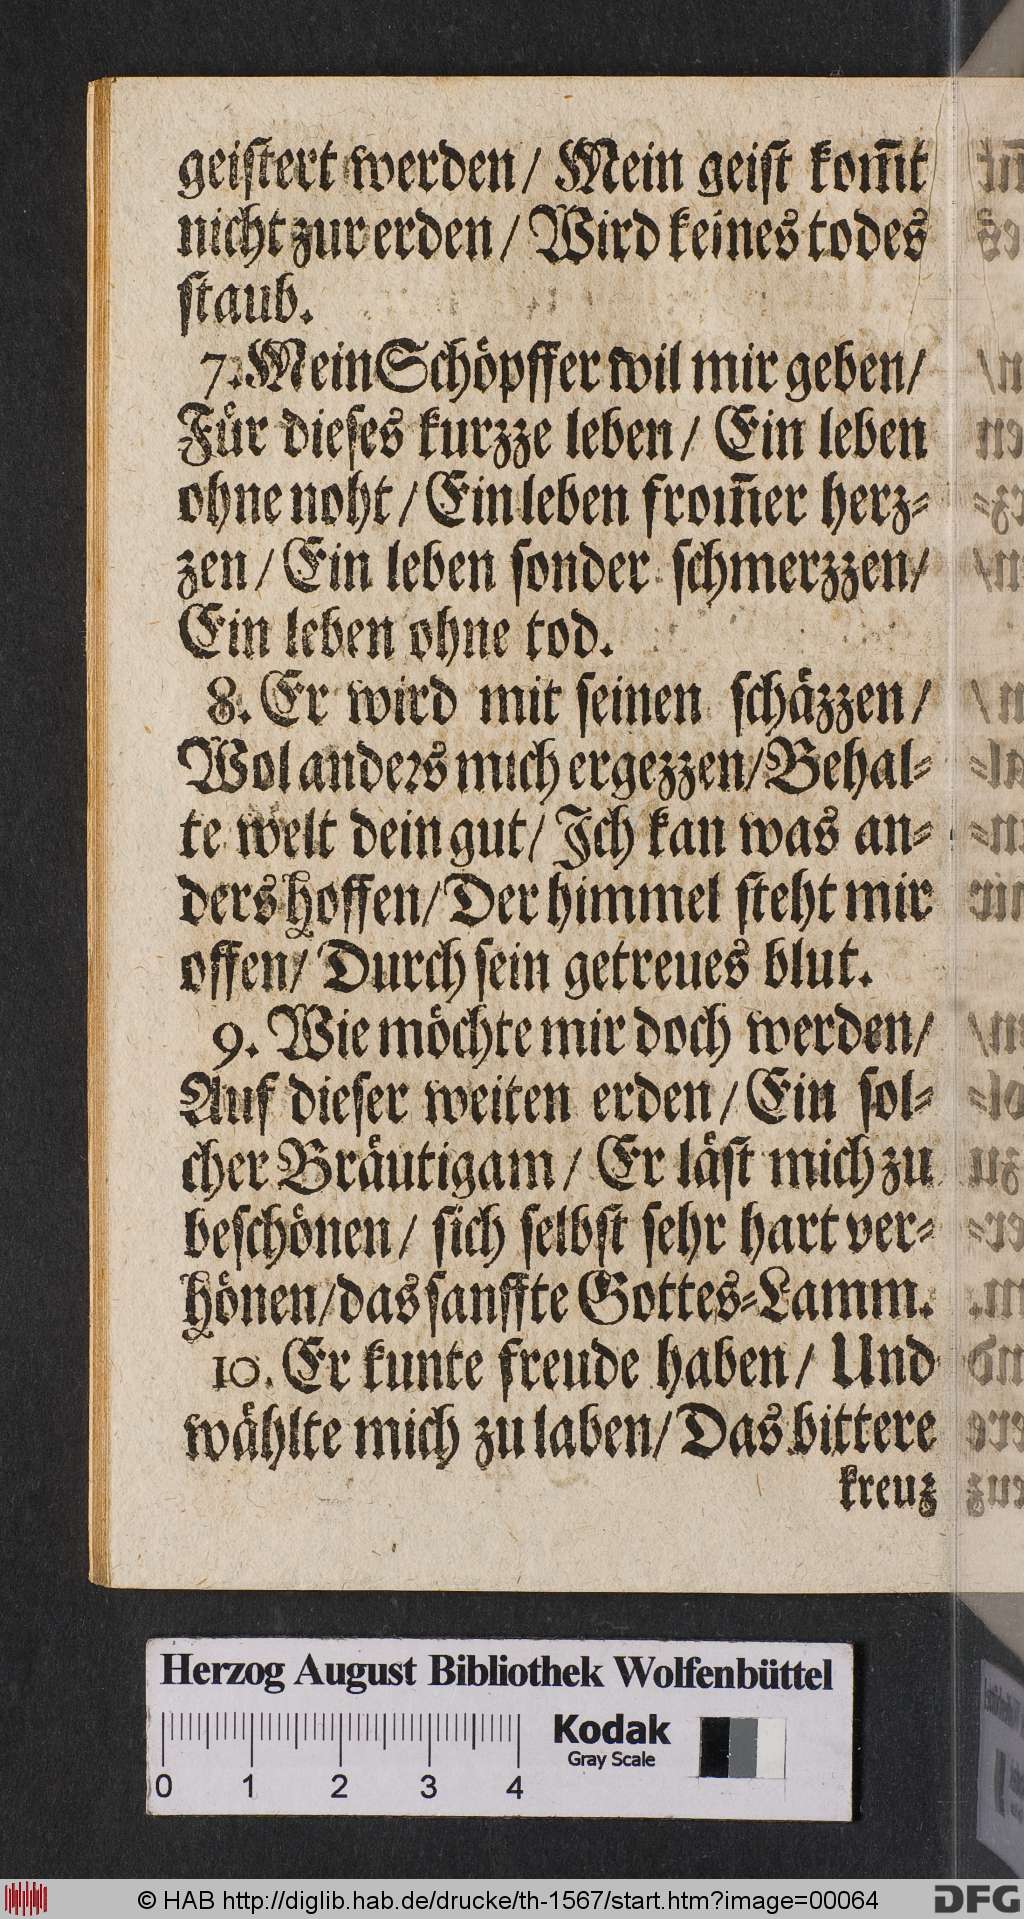 geistert werden/ Mein geist kom̄t
nicht zur erden/ Wird keines todes
staub.
7. Mein Schöpffer wil mir geben/
Für dieses kurzze leben/ Ein leben
ohne noht/ Ein leben from̄er herz-
zen/ Ein leben sonder schmerzzen/
Ein leben ohne tod.
8. Er wird mit seinen schäzzen/
Wol anders mich ergezzen/ Behal-
te welt dein gut/ Ich kan was an-
ders hoffen/ Der himmel steht mir
offen/ Durch sein getreues blut.
9. Wie möchte mir doch werden/
Auf dieser weiten erden/ Ein sol-
cher Bräutigam/ Er läst mich zu
beschönen/ sich selbst sehr hart ver-
hönen/ das sanffte Gottes-Lamm.
10. Er kunte freude haben/ Und
wählte mich zu laben/ Das bittere
kreuz
Herzog August Bibliothek Wolfenbüttel
Kodak
Gray Scale
0 1 2 3 4
© HAB http://diglib.hab.de/drucke/th-1567/start.htm?image=00064
DFG